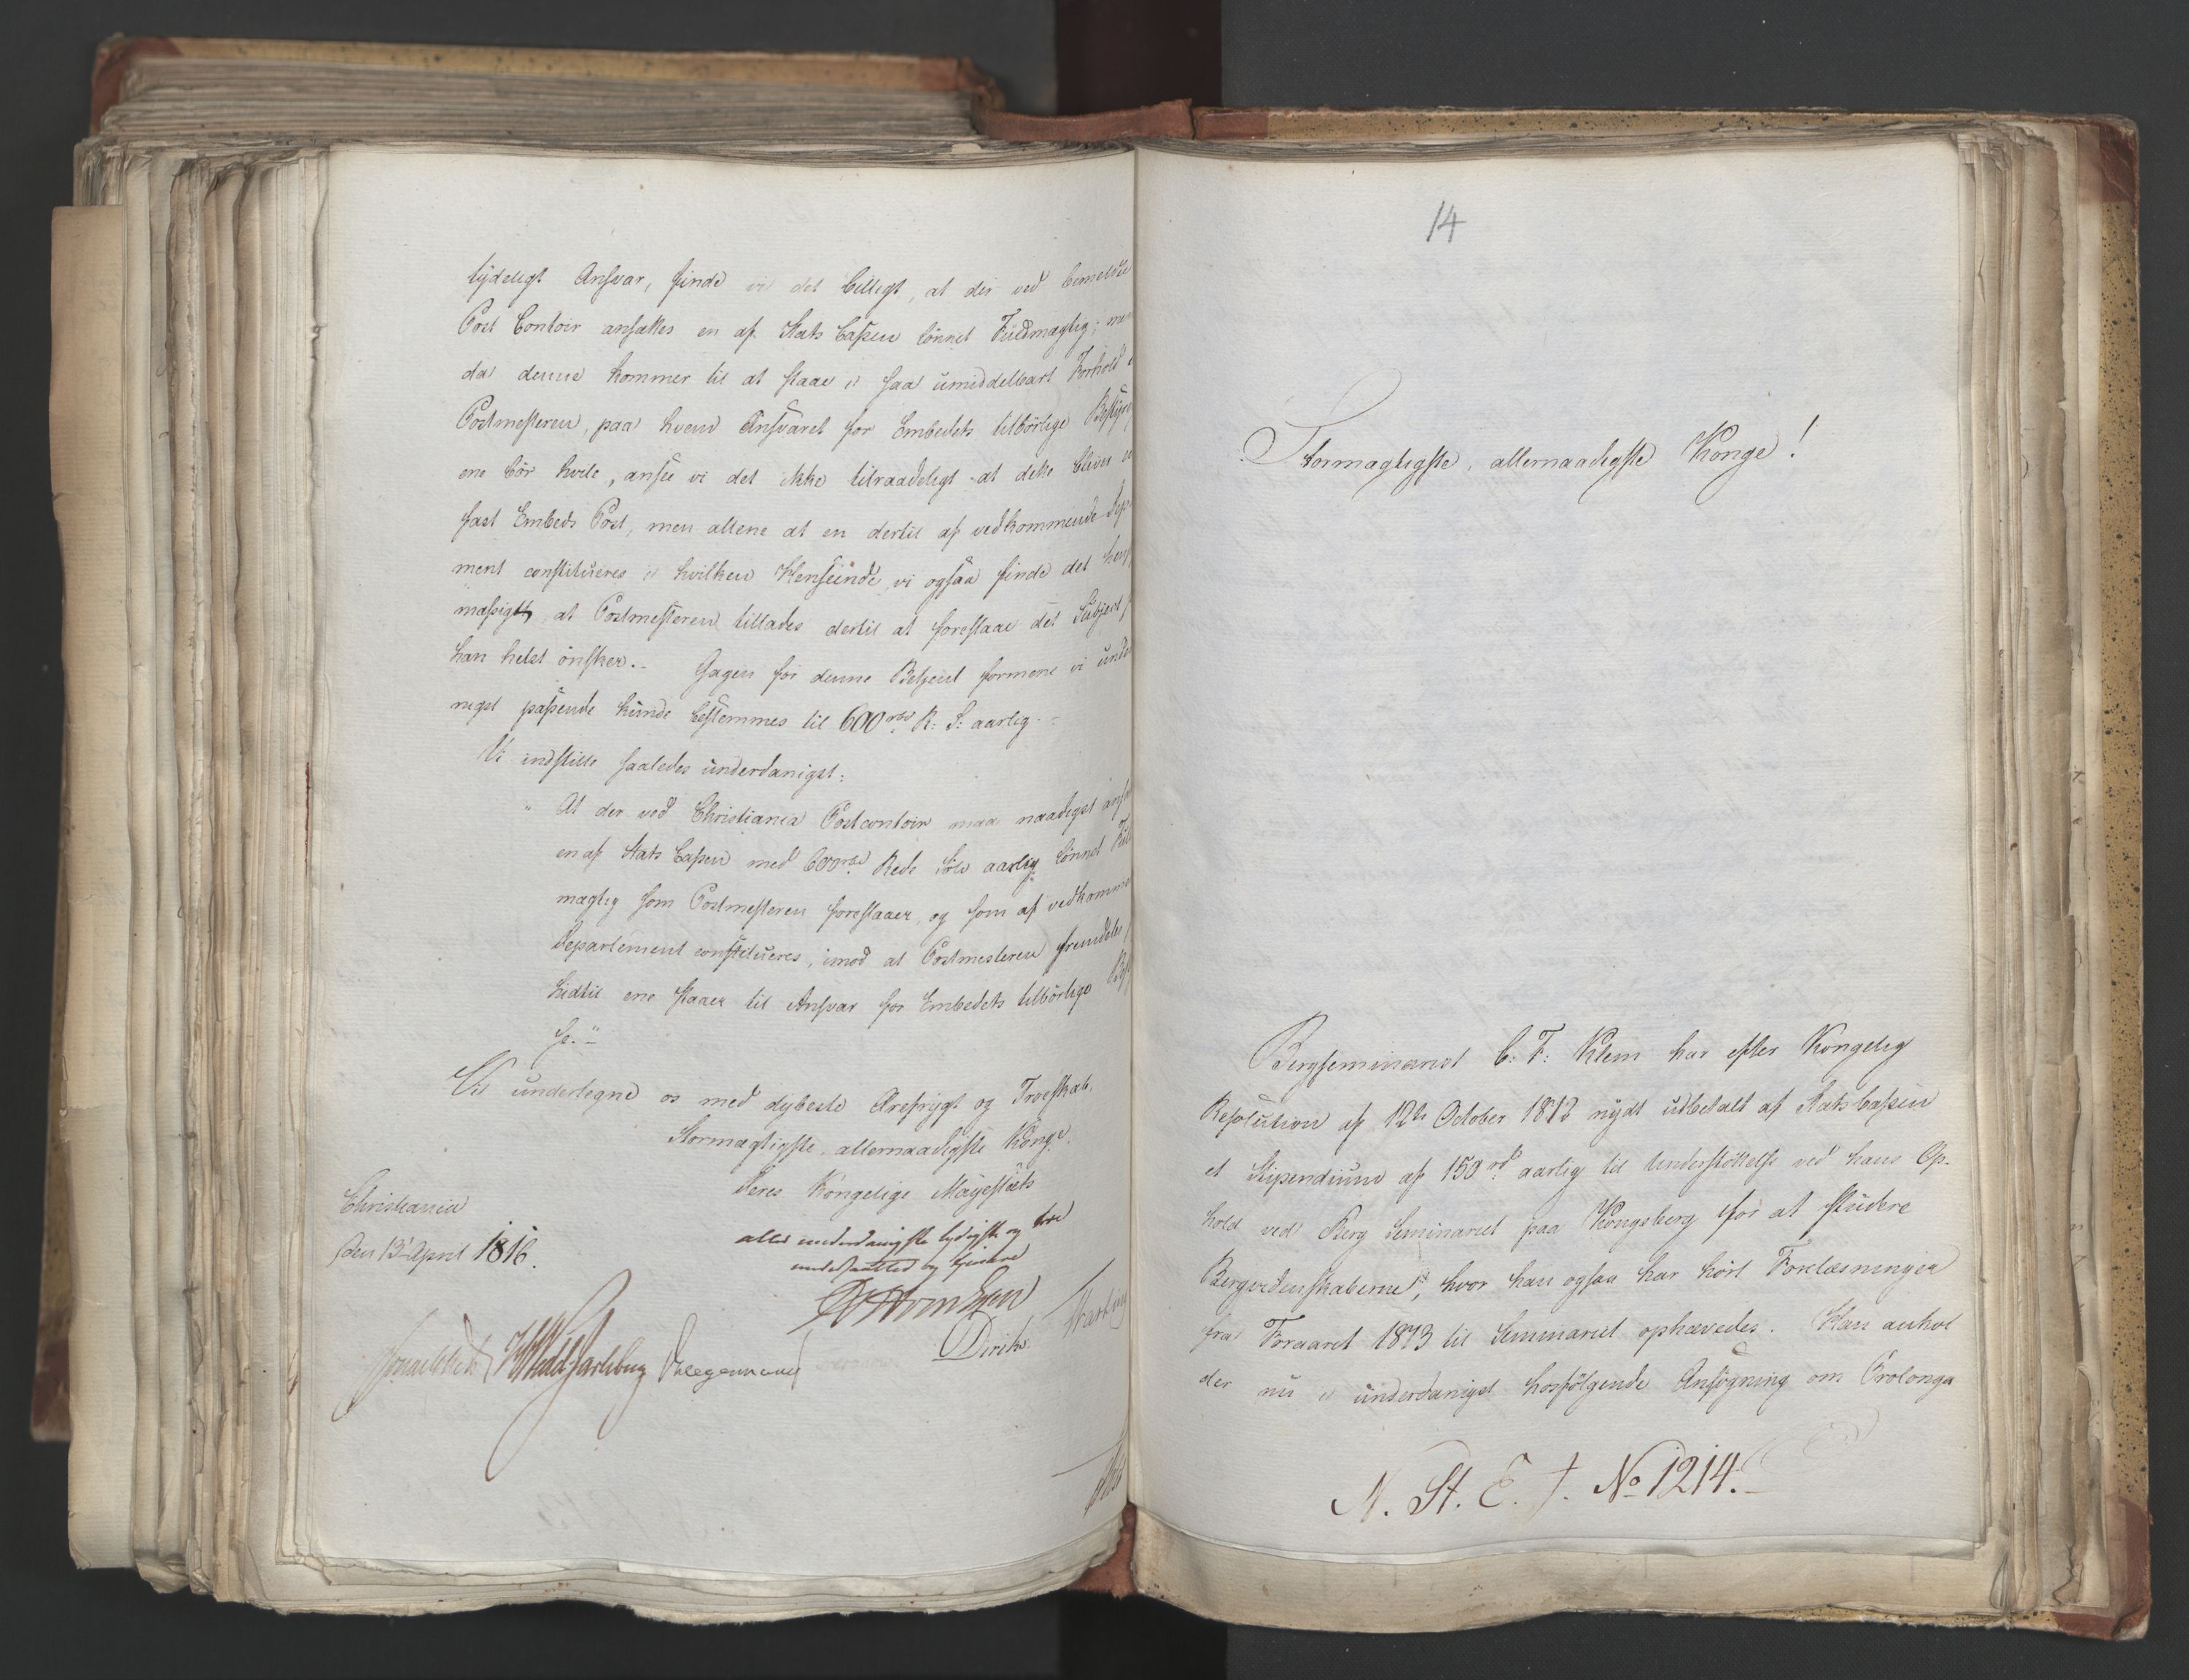 tydeligt Ansvar, finde vi det billigt, at der ved bemeldte
Post Contoir ansættes en af Stats Cassen lönnet Fuldmægtig; men
da denne kommer til at staae i saa umiddelbart Forhold
Postmesteren, paa hvem Ansvaret for Embedets tilbörlige Bestyre
ene bör hvile, ansee vi det ikke tilraadeligt at dette bliver en
fast Embeds Post, men allene at en dertil af vedkommende Dep
ment constitueres i hvilken Henseende vi ogsaa finde det hen
mæssigt, at Postmesteren tillades dertil at foreslaae det Subject
han helst önsker. Gagen for denne Betjent formene vi unde
nigst passende kunde bestemmes til 600 rbd R: S: aarlig.
Vi indstille saaledes underdanigst:
" At der ved Christiania Postcontoir maa naadigst ans
en af Stats Cassen med 600 rbd Rede Sölv aarlig lönnet Ful
mægtig som Postmesteren foreslaaer, og som af vedkomme
Departement constitueres, imod at Postmesteren fremdeles
hidtil ene staaer til Ansvar for Embedets tilbörlige Best
se."
Vi undertegne os med dybeste Ærefrygt og Troeskab,
Stormægtigste, allernaadigste Konge,
Deres Kongelige Mayestæts
Christiania
den 13 April 1816.
allerunderdanigste lydigste og troe
undersaatter og tienere
Sommerhielm
Diriks
HWedelJarlsberg
14
Stormægtigste, allernaadigste Konge!
Bergseminarist C: F: Klem har efter Kongelig
Resolution af 12te October 1813 nydt udbetalt af Stats Cassen
et Stipendium af 150 rd aarlig til Understöttelse ved hans Op-
hold ved Berg Seminariet paa Kongsberg for at studere
Bergvidenskaberne, hvor han ogsaa har hört Forelæsninger
fra Foraaret 1813 til Seminariet ophævedes. Han anhol
der nu i underdanigst hosfölgende Ansögning om Prolonga
N. St. E. J. No 1214.